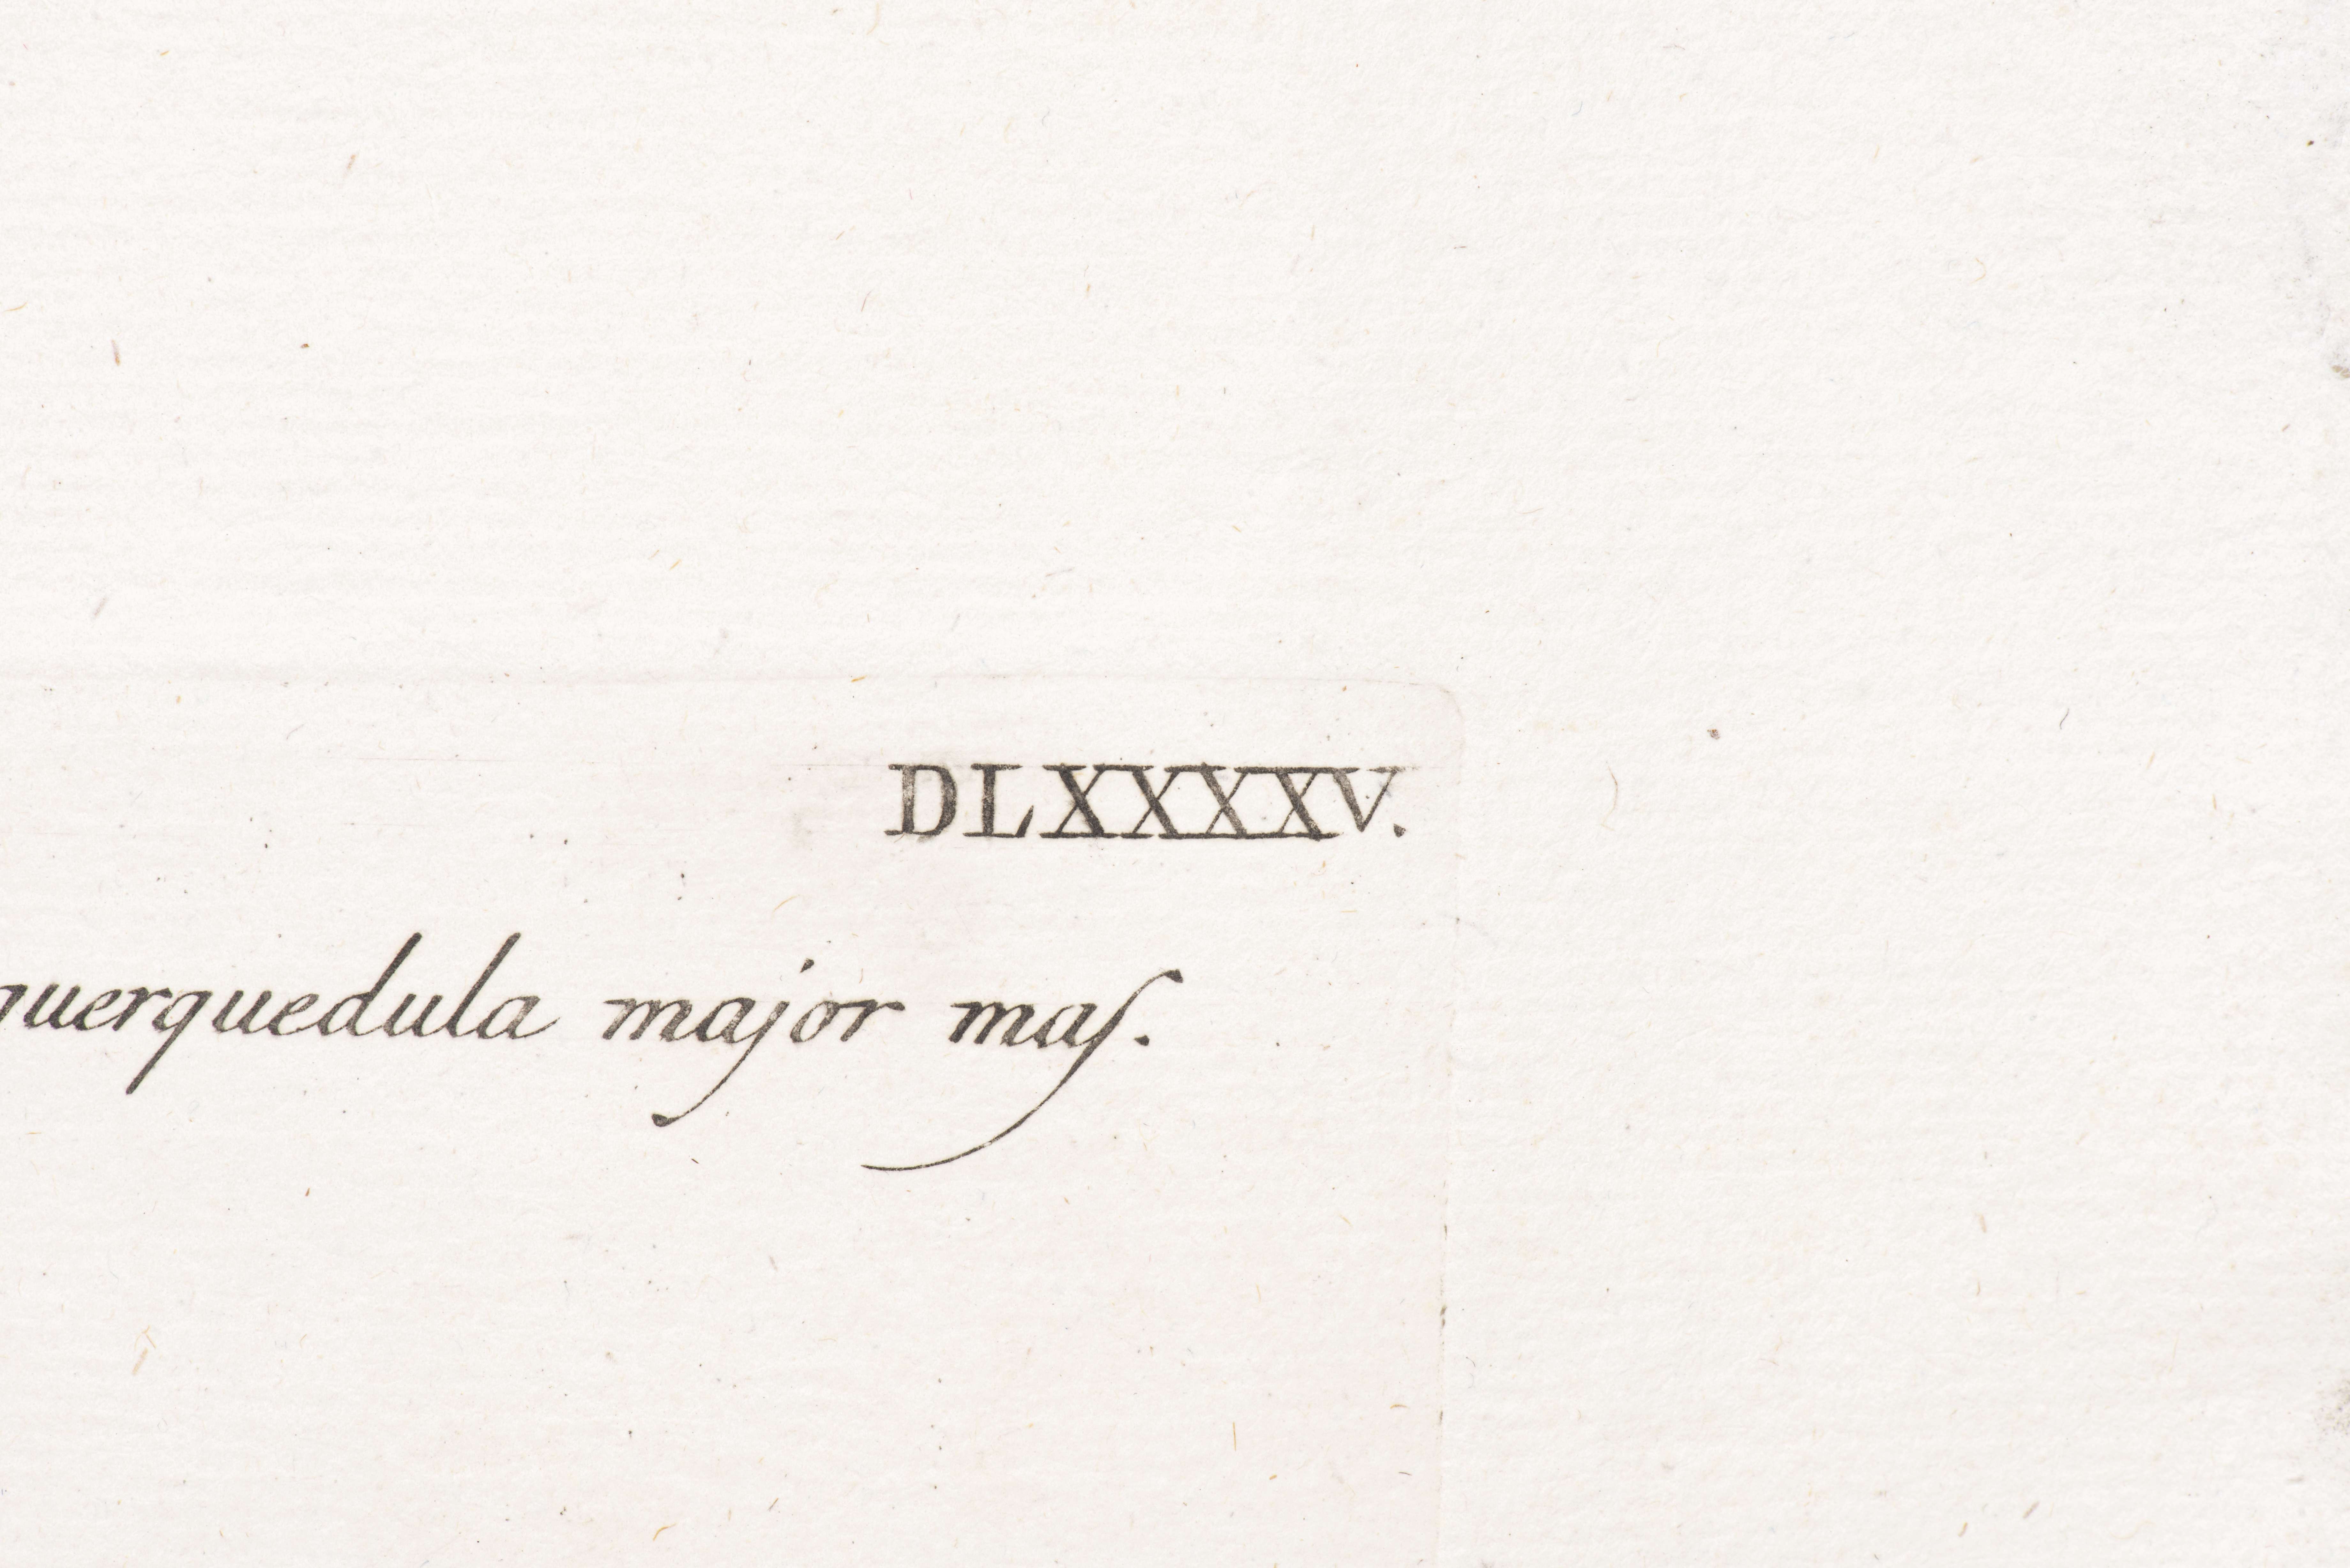 DLXXXXV.
querquedula major mas.